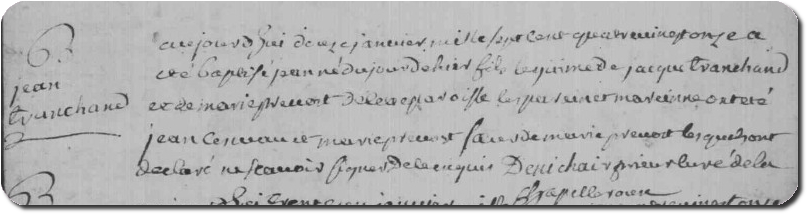 B
jean
tranchand
aujourdhui douze janvier mille sept cent quatrevingt onze a
eté baptisé jean né du jour dehier fils legitime de jacque tranchand
et de marie prevost de cette paroisse les parein et mareinne ont eté
jean et marie prevost sœur de marie prevost lesquels ont
declaré ne scavoir signer de ce enquis Denichair prieur curé de la
Chapelle
janvier